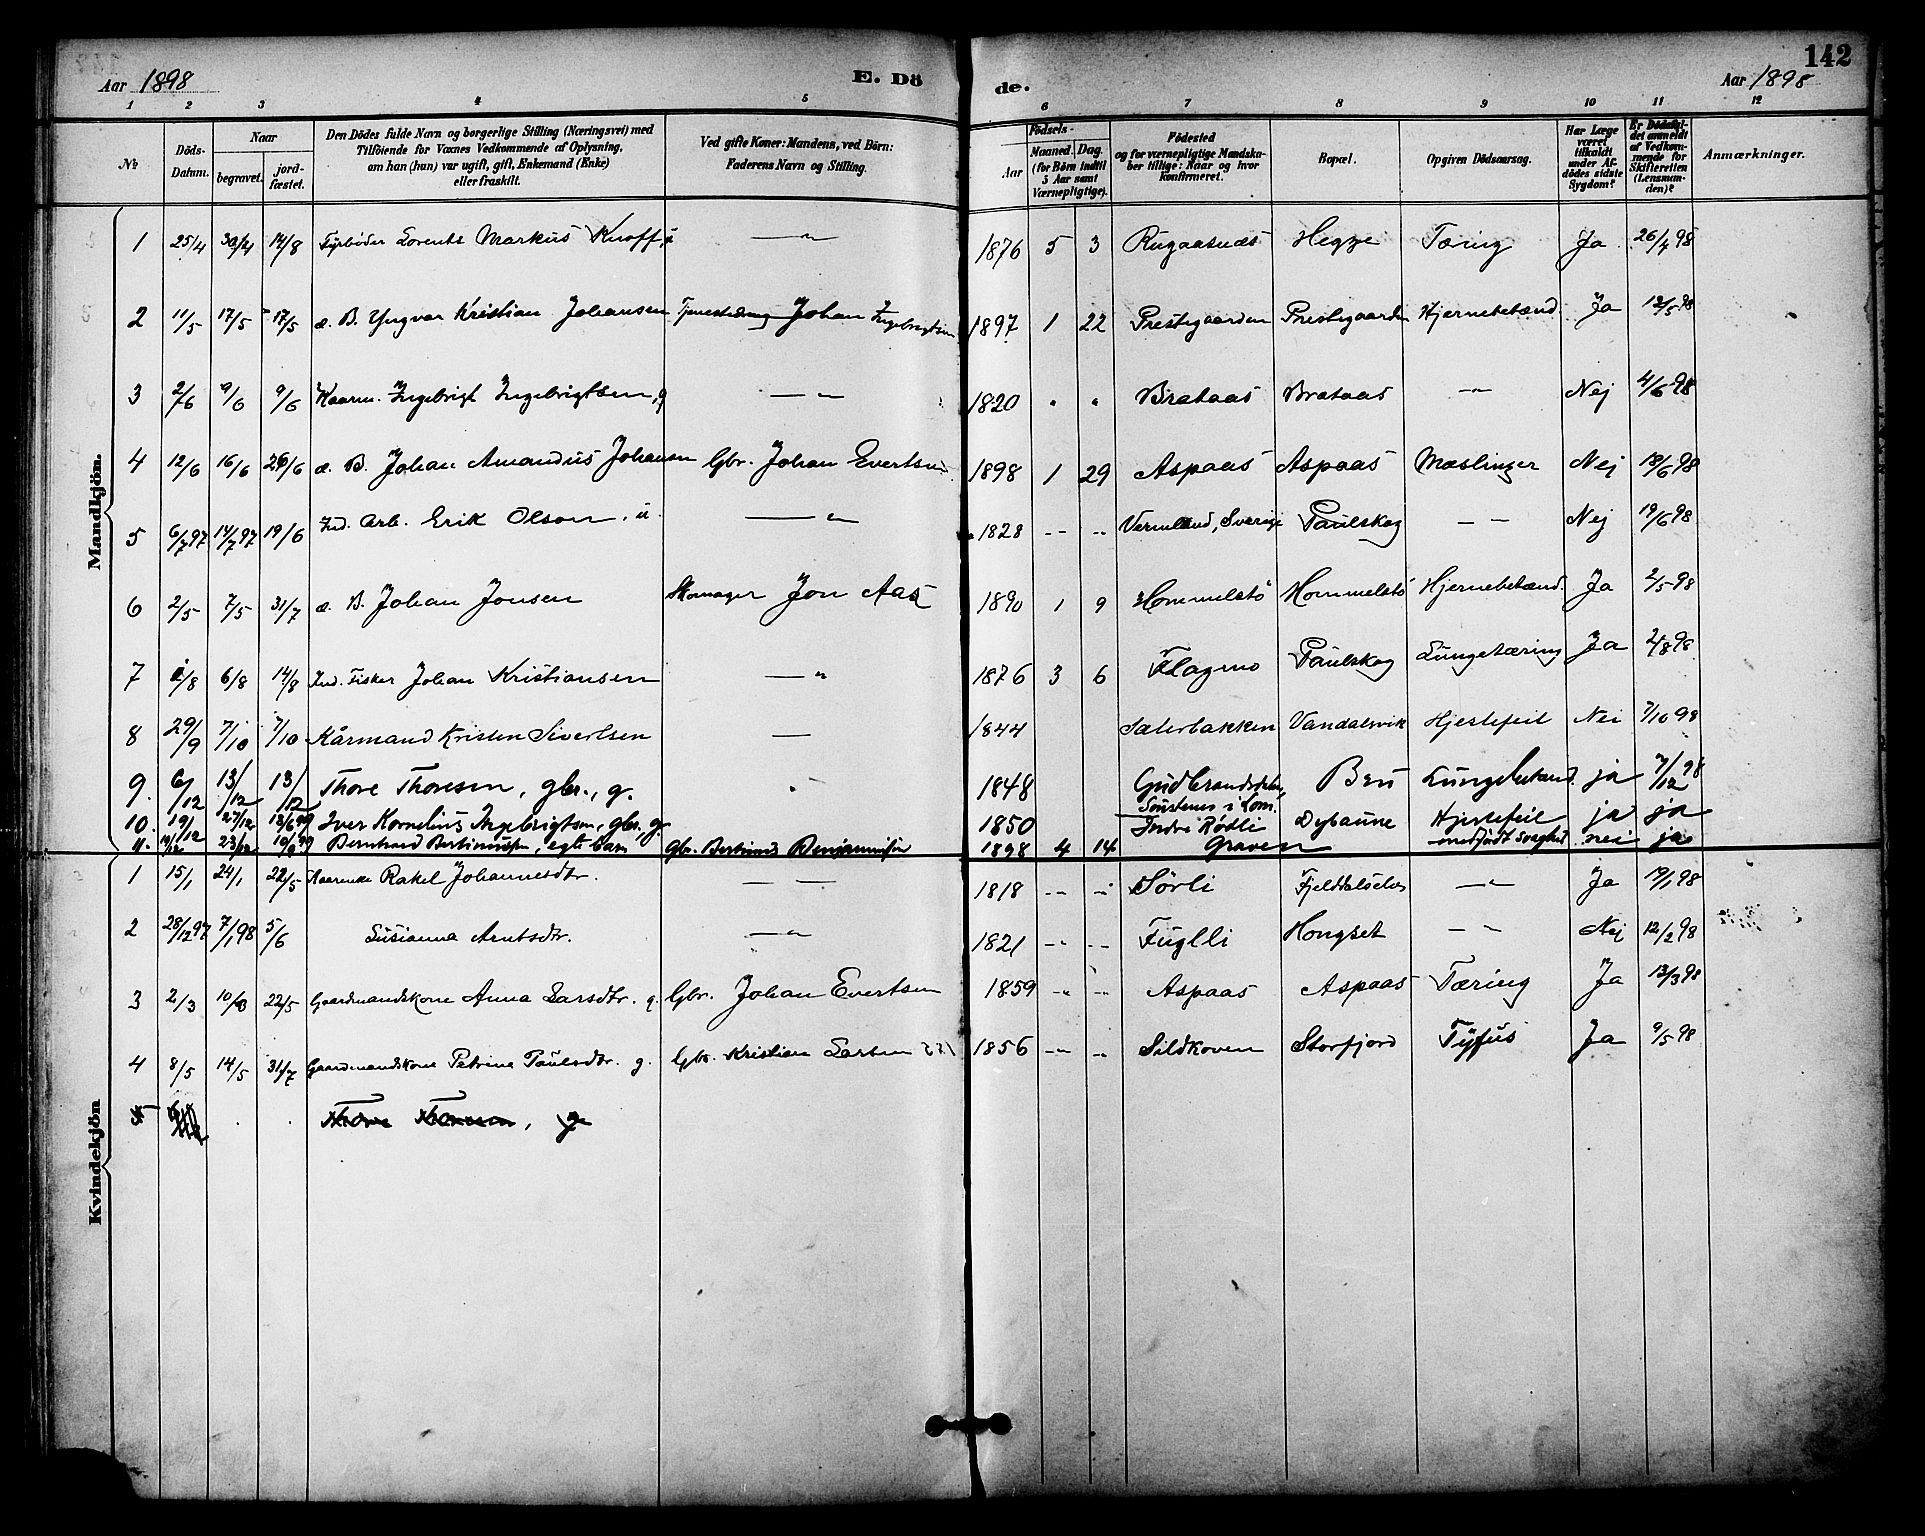 142
Aar 1898 E. Dö de. Aar 1898
1 2 3 4 5 6 7 8 9 10 11 12
No
Döds-Datum.
Naar
begravet.
jord-fæstet.
Den Dödes fulde Navn og borgerlige Stilling (Næringsvei) med
Tilföiende for Voxnes Vedkommende af Oplysning,
om han (hun) var ugift, gift, Enkemand (Enke)
eller fraskilt.
Ved gifte Koner: Mandens, ved Börn:
Faderens Navn og Stilling.
Födsels-
Aar
Maaned. Dag.
(for Börn indtil
5 Aar samt
Værnepligtige).
Födested
og for værnepligtige Mandska-
ber tillige: Naar og hvor
konfirmeret.
Bopæl.
Opgiven Dödsaarsag.
Har Læge
været
tilkaldt
under Af-
dödes sidste
Sygdom?
Er Dödsfal-
det anmeldt
af Vedkom-
mende for
Skifteretten
(Lensman-
den)?
Anmærkninger.
Mandkjön.
1 25/4 30/4 14/8 Fyrbøder Lorents Markus Knoff, u — " — 1876 5 3 Rugaasnæs Hegge Tæring Ja 26/4 98
2 11/5 17/5 17/5 æ. B. Yngvar Kristian Johansen Johan Ingebrigtsen 1897 1 22 Prestegaarden Prestegaarden Hjernebetænd. Ja 12/5 98
3 2/6 9/6 9/6 Kaarm. Ingebrigt Ingebrigtsen, g — " — 1820 " " Brataas Brataas — " — Nej 4/6 98
4 12/6 16/6 26/6 æ. B. Johan Amandus Johansen Gbr. Johan Evertsen 1898 1 29 Aspaas Aspaas Mæslinger Nej 18/6 98
5 6/7 97 14/7 97 19/6 Ind. Arb. Erik Olson, u. — " — 1828 -- -- Vermland, Sverige Paulskog — — Nej 19/6 98
6 2/5 7/5 31/7 æ. B. Johan Jonsen Skomager Jon Aas 1890 1 9 Hommelstö Hommelstö Hjernebetænd. Ja 2/5 98
7 1/8 6/8 14/8 Ind. Fisker Johan Kristiansen — " 1876 3 6 Flagmo Paulskog Lungetæring Ja 2/8 98
8 29/9 7/10 7/10 Kårmand Kristen Sivertsen — 1844 Sæterbakken Vandalsvik Hjertefeil Nei 7/10 98
9. 6/12 13/12 13/12 Thore Thoresen, gbr., g. " 1848 Gudbrandsdalen, Lungebetænd. ja 7/12 98
10. 19/12 27/12 Iver Kornelius Ingebrigtsen, gbr. g. 1850 Indre Rødli Hjertefeil ja ja
11. 23/12 Bernhard Bertinussen, egte barn Gbr. Bertinus Benjaminsen 1898 4 14 Graven medfødt svaghed nei ja
Kvindekjön
1 15/1 24/1 22/5 Kaarenke Rakel Johannesdtr. — — 1818 -- -- Sörli Ja 19/1 98
2 28/12 97 7/1 98 5/6 Susianna Arntsdtr. — " — 1821 -- -- Fuglli Hongset — " — Nej 12/2 98
3 2/3 10/3 22/5 Gaardmandskone Anna Larsdtr. g. Gbr. Johan Evertsen 1859 -- -- Aspaas Aspaas Tæring Ja 13/3 98
4 8/5 14/5 31/7 Gaardmandskone Petrine Paulsdtr. g. Gbr. Kristian Larsen 1856 -- -- Sildkoven Storfjord Tyfus Ja 9/5 98
5 Thore Thoresen, g